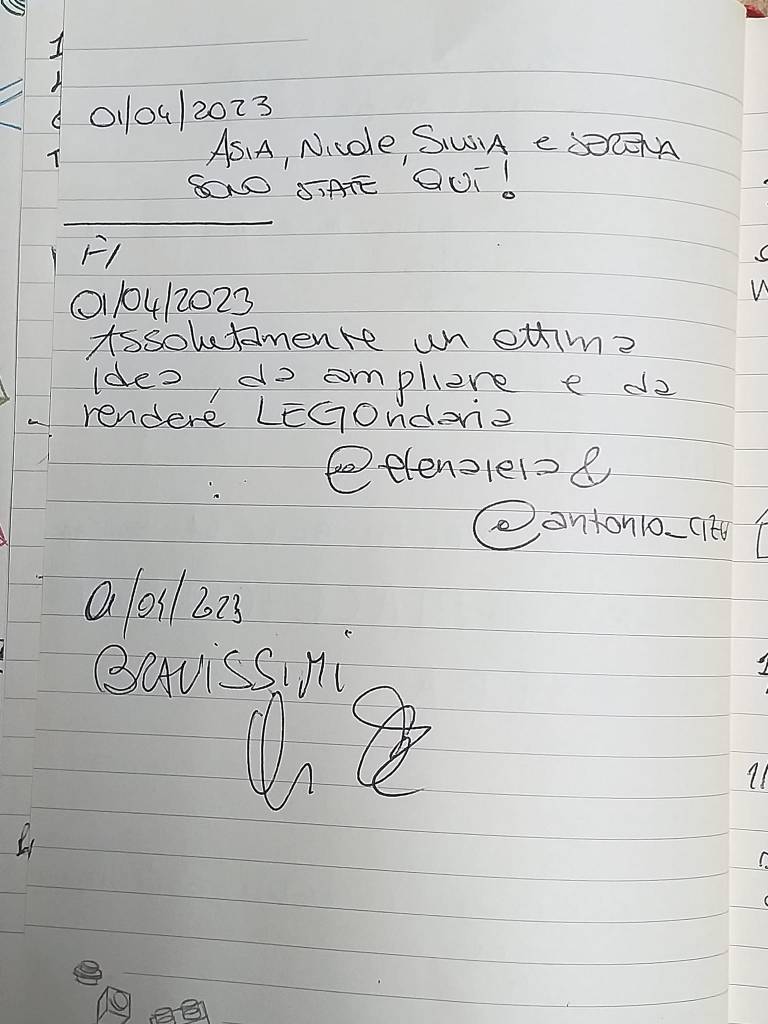 01/04/2023
ASIA, Nicole, SILVIA e SERENA
SONO STATE QUI!
01/04/2023
Assolutamente un ottima
idea, da ampliare e da
renderé LEGOndaria
@elenalela &
@antonio_citu
01/04/2023
BRAVISSIMI